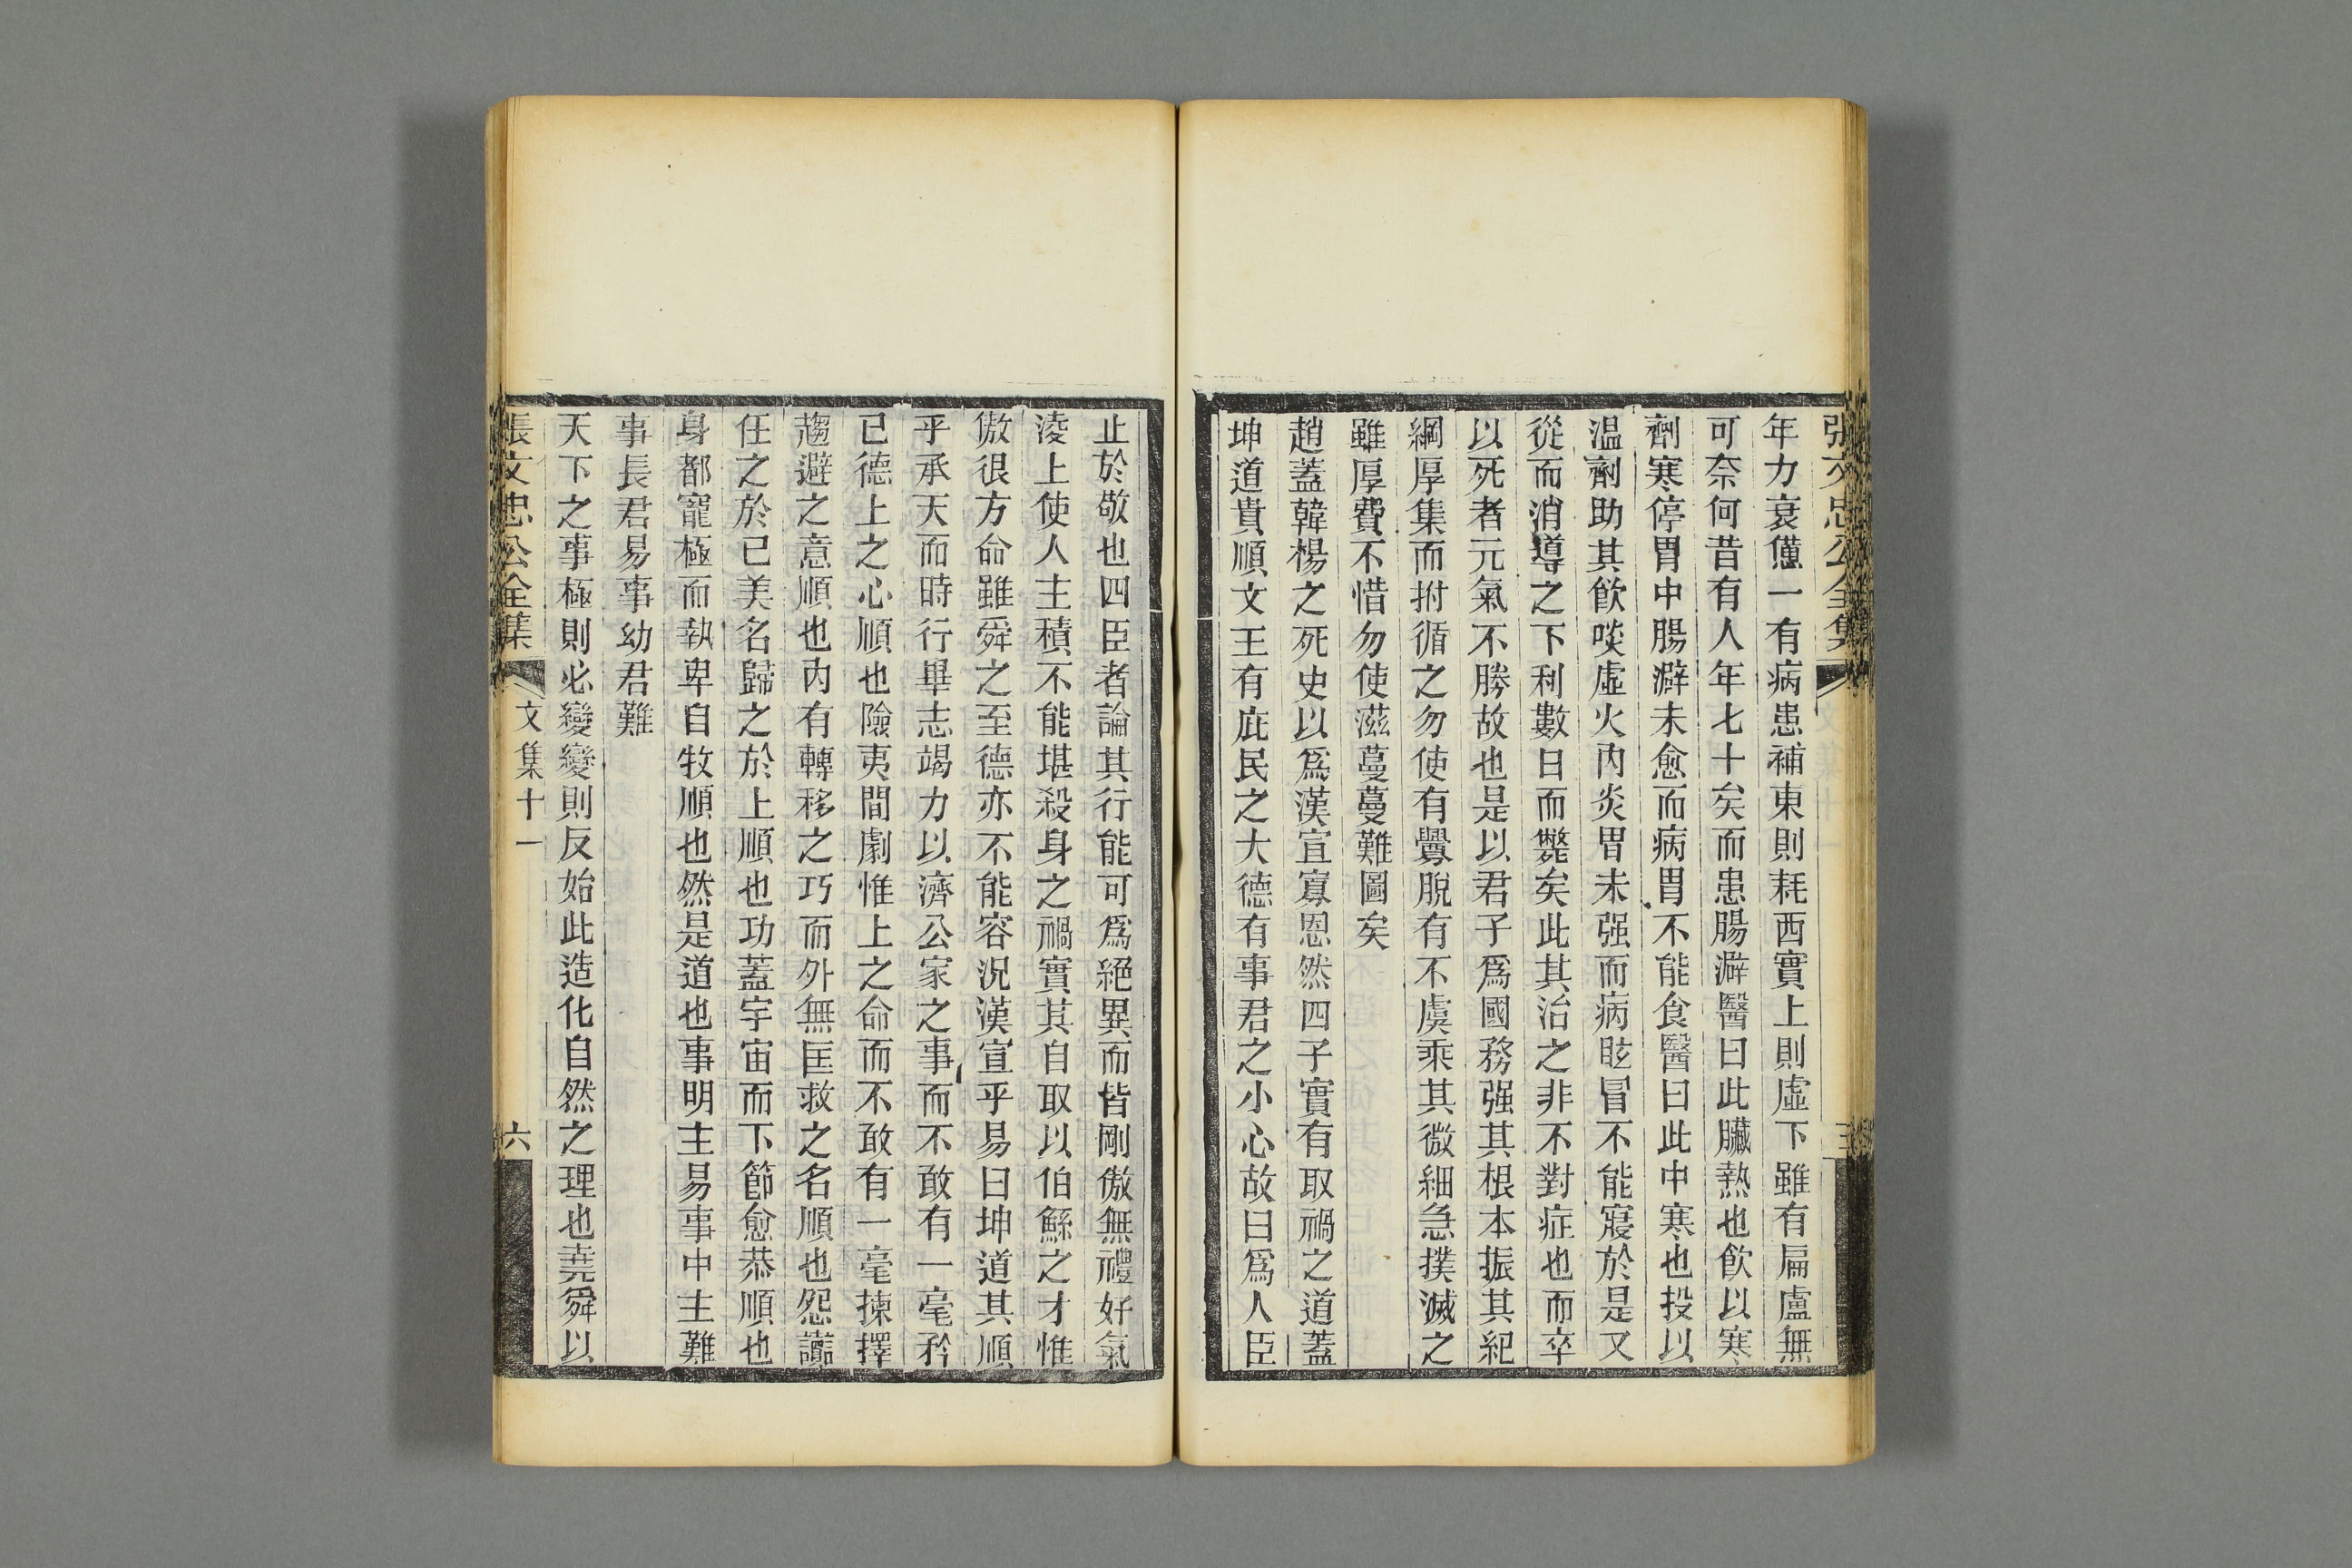 張文忠公全集
年力衰僅一有病患補東則耗西實上則虛下雖有扁盧無
可奈何昔有人年七十矣而患腸澼醫曰此臟熱也飲以寒
劑寒停胃中腸澼未愈而病胃不能食醫曰此中寒也投以
温劑助其飲啖虛火內炎胃未强而病眩冒不能寢於是又
從而消導之下利數日而斃矣此其治之非不對症也而卒
以死者元氣不勝故也是以君子爲國務强其根本振其紀
綱厚集而拊循之勿使有釁脫有不虞乘其微細急撲滅之
雖厚費不惜勿使滋蔓蔓難圖矣
趙蓋韓楊之死史以爲漢宣寡恩然四子實有取禍之道蓋
坤道貴順文王有庇民之大德有事君之小心故曰爲人臣
止於敬也四臣者論其行能可爲絕異而皆剛傲無禮好氣
淩上使人主積不能堪殺身之禍實其自取以伯鯀之才惟
傲很方命雖舜之至德亦不能容況漢宣乎易曰坤道其順
乎承天而時行畢志竭力以濟公家之事而不敢有一毫矜
已德上之心順也險夷間劇惟上之命而不敢有一毫揀擇
趨避之意順也內有轉移之巧而外無匡救之名順也怨讟
任之於已美名歸之於上順也功蓋宇宙而下節愈恭順也
身都寵極而執卑自牧順也然是道也事明主易事中主難
事長君易事幼君難
天下之事極則必變變則反始此造化自然之理也堯舜以
張文忠公全集
文集十一
六